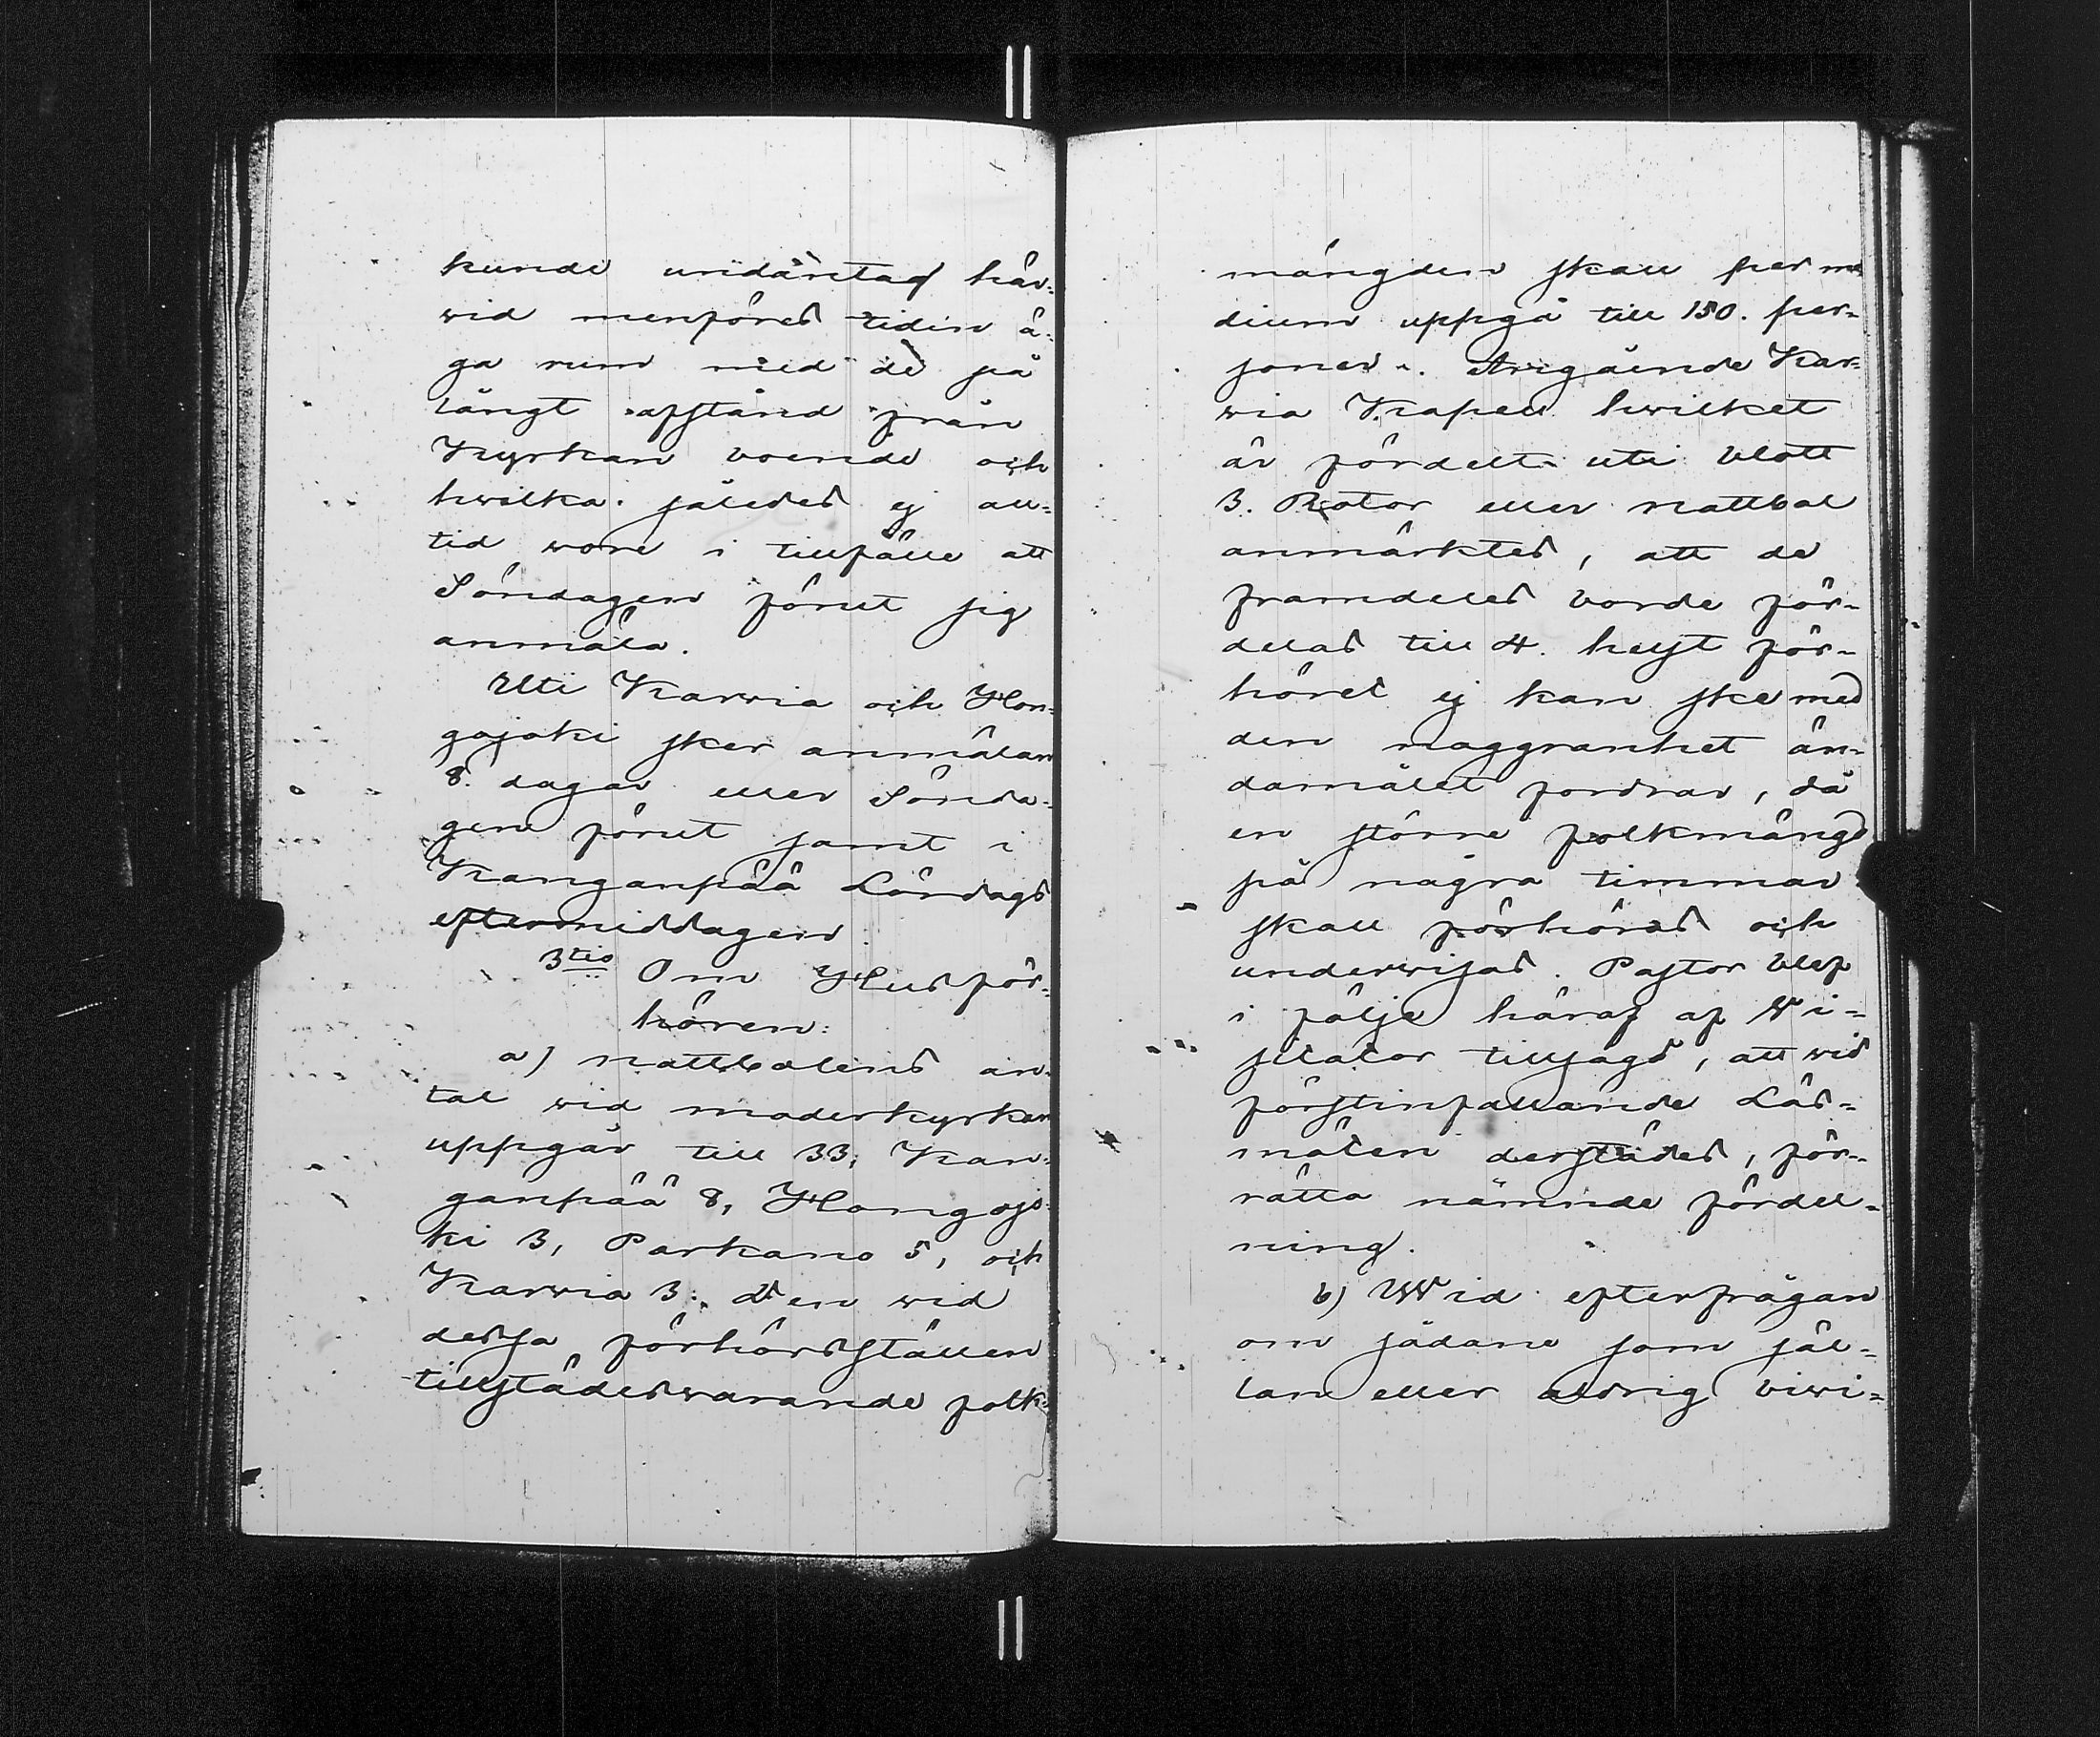 kunde undantag här-
wid menföres tiden ä-
ga rum med de på
långt afstånd från
Kyrkan boende och
hwilka således ej all-
tid wore i tillfälle att
Söndagen förut sig
anmäla.
Uti Karvia och Hon-
gojoki sker anmälan
8. dagar eller Sönda-
gen förut samt i
Kanganpää Lördags
eftermiddagen.
3tio Om Husför-
hören:
a) nattbolens an-
tal wid moderkyrkan
uppgår till 33, Kan-
ganpää 8, Hongojo-
ki 3, Parkano 5, och
Karvia 3. Den wid
dessa förhörsställen
tillstädeswarande folk-
mängden skall per me-
dium uppgå till 150. per-
soner. Angående Kar-
via Kapell hwilket
är fördelt uti blott
3. Rotor eller nattbol
anmärktes, att de
framdeles borde för-
delas till 4. helst för-
höret ej kan ske med
den noggranhet än-
damålet fordrar, då
en större folkmängd
på några timmar
skall förhöras och
underwisas. Pastor blef
i följe häraf af Wi-
sitator tillsagd, att wid
förstinfallande Läs-
möten derstädes, för-
rätta nämnde fördel-
ning.
b) Wid efterfrågan
om sådane som säl-
lan eller aldrig biwi-